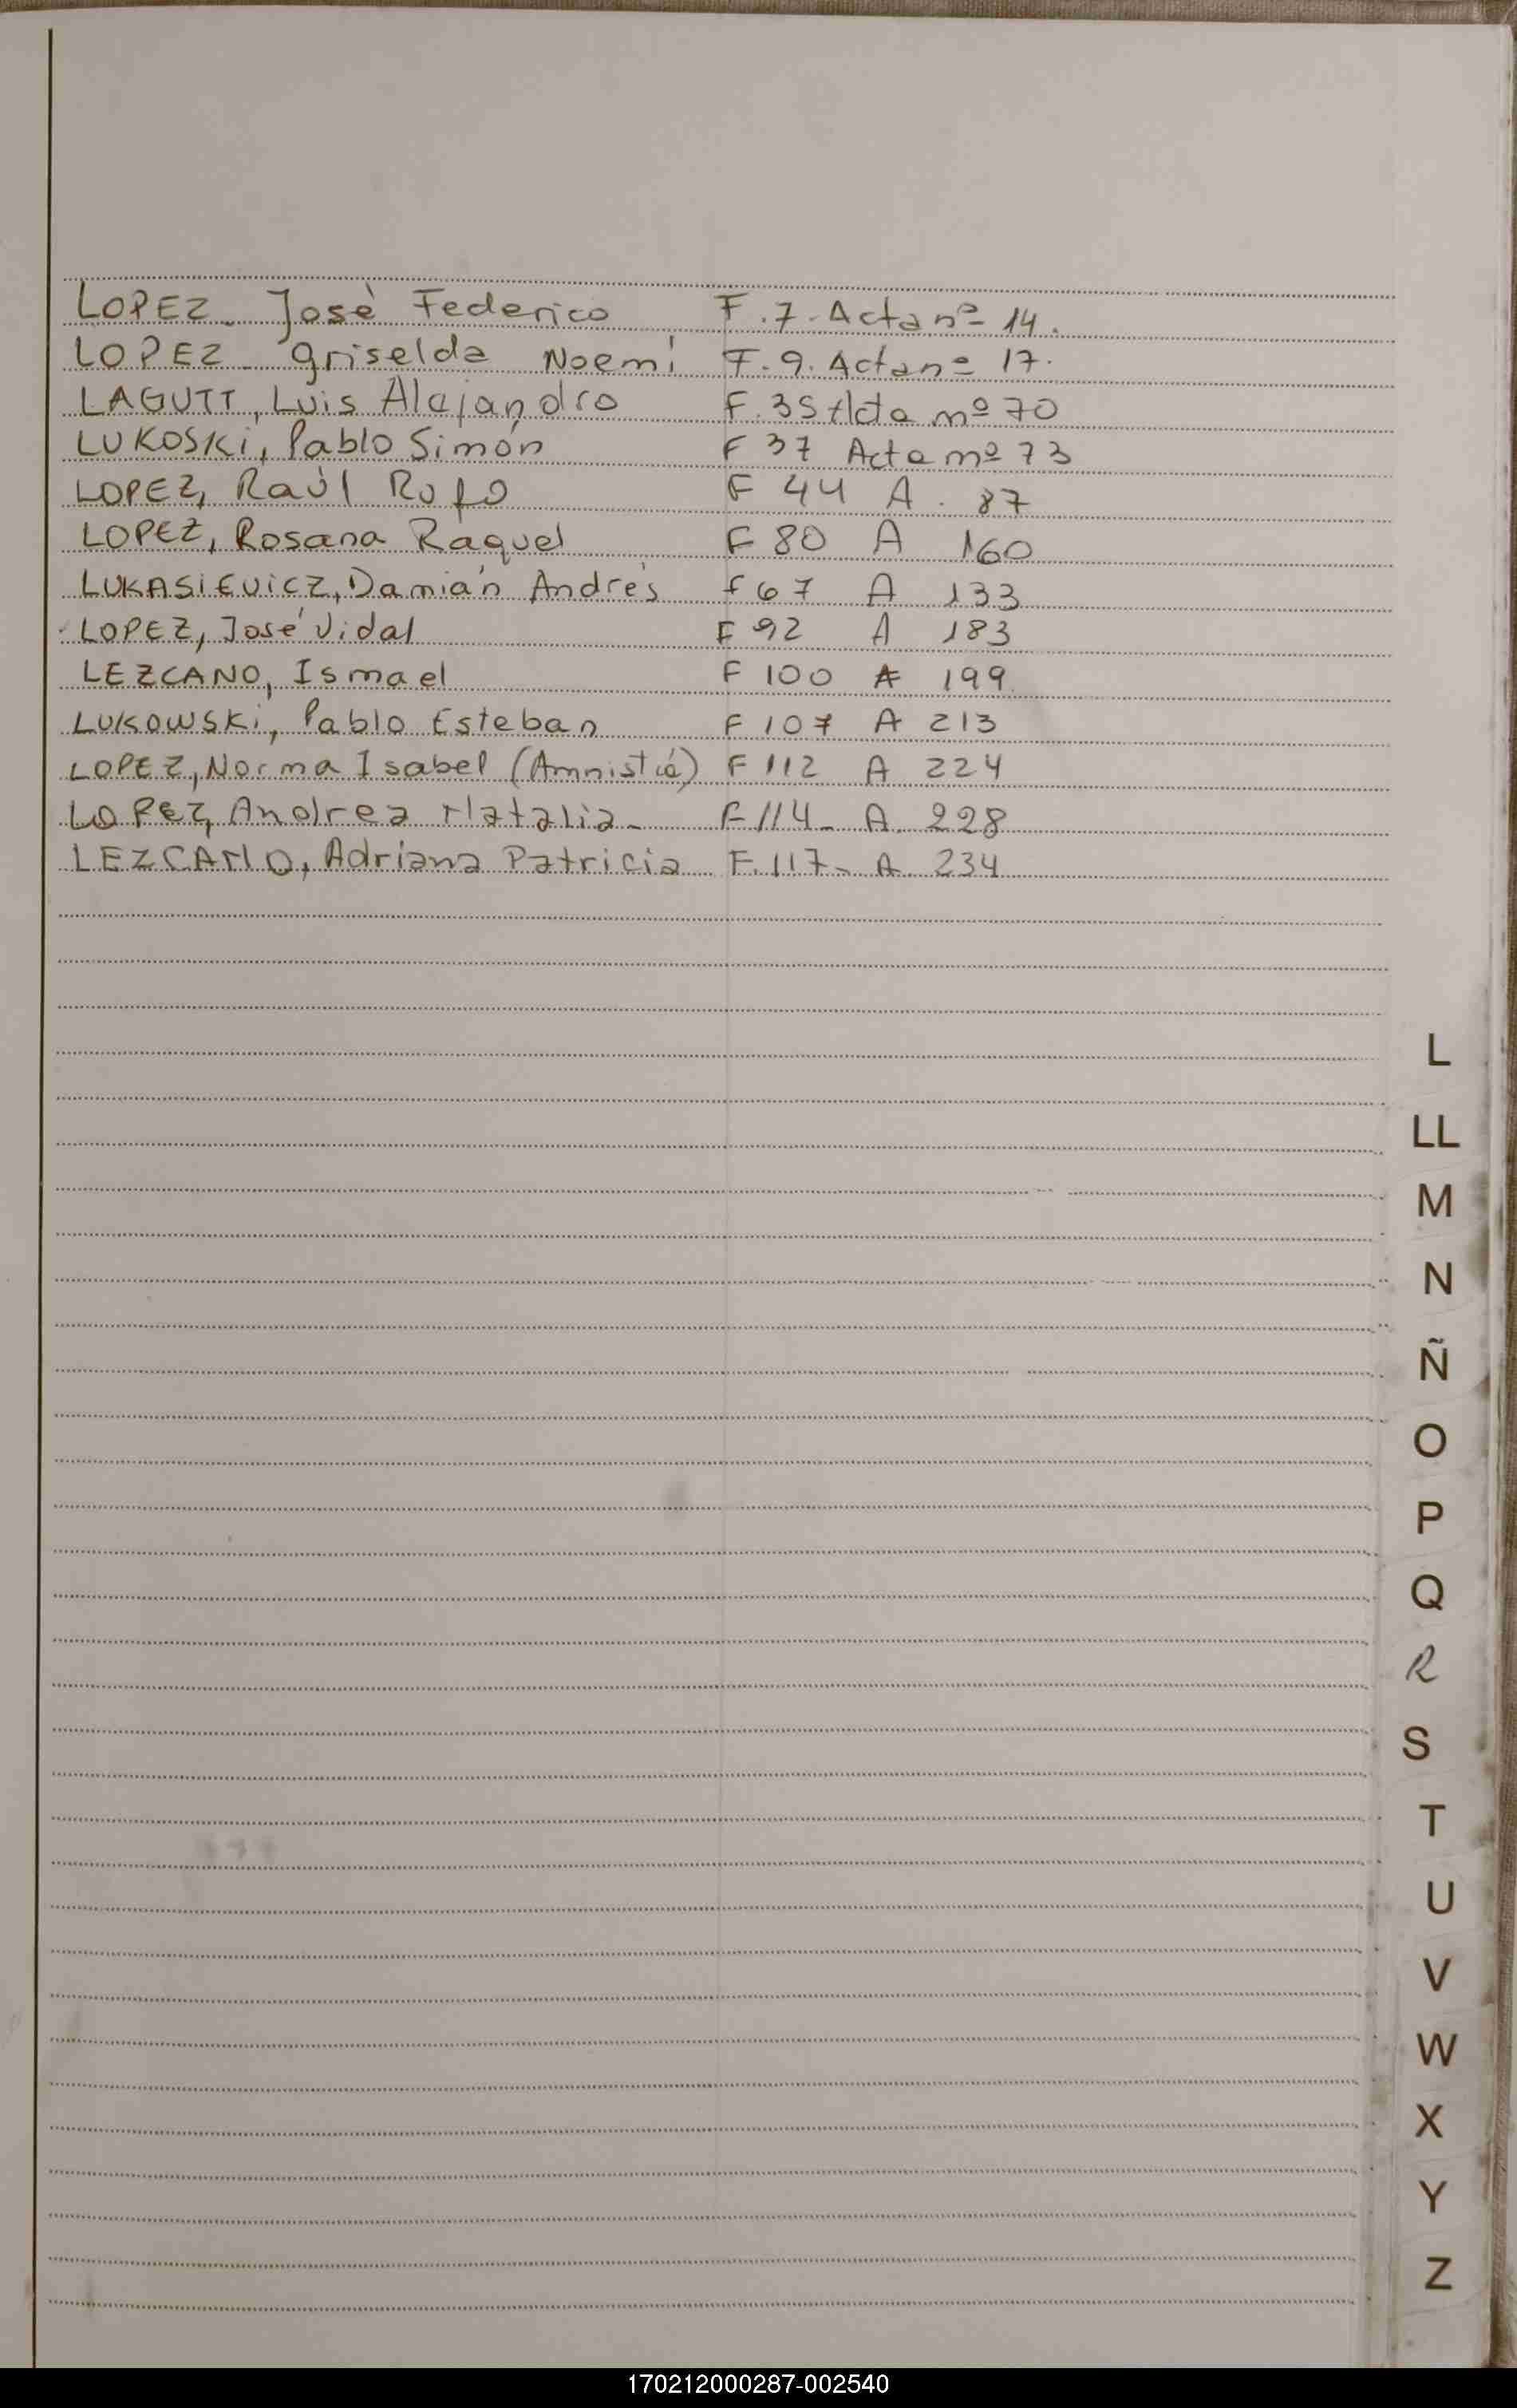 LOPEZ - José Federico F. 7 - Acta nº 14.
LOPEZ - Griselda Noemí F. 9. Acta nº 17.
LAGUTT, Luis Alejandro F. 35 Acta nº 70
LUKOSKi, Pablo Simón F 37 Acta nº 73
LOPEZ, Raúl Rufo F 44 A. 87
LOPEZ, Rosana Raquel F 80 A 160
LUKASiEViCZ, Damián Andrés F 67 A 133
LOPEZ, José Vidal F 92 A 183
LEZCANO, Ismael F 100 A 199
LUKOWSKi, Pablo Esteban F 107 A 213
LOPEZ, Norma Isabel (Amnistía) F 112 A 224
LOPEZ, Andrea Natalia - F 114 - A. 228
LEZCANO, Adriana Patricia F. 117 - A. 234
L
LL
M
N
Ñ
O
P
Q
R
S
T
U
V
W
X
Y
Z
170212000287-002540